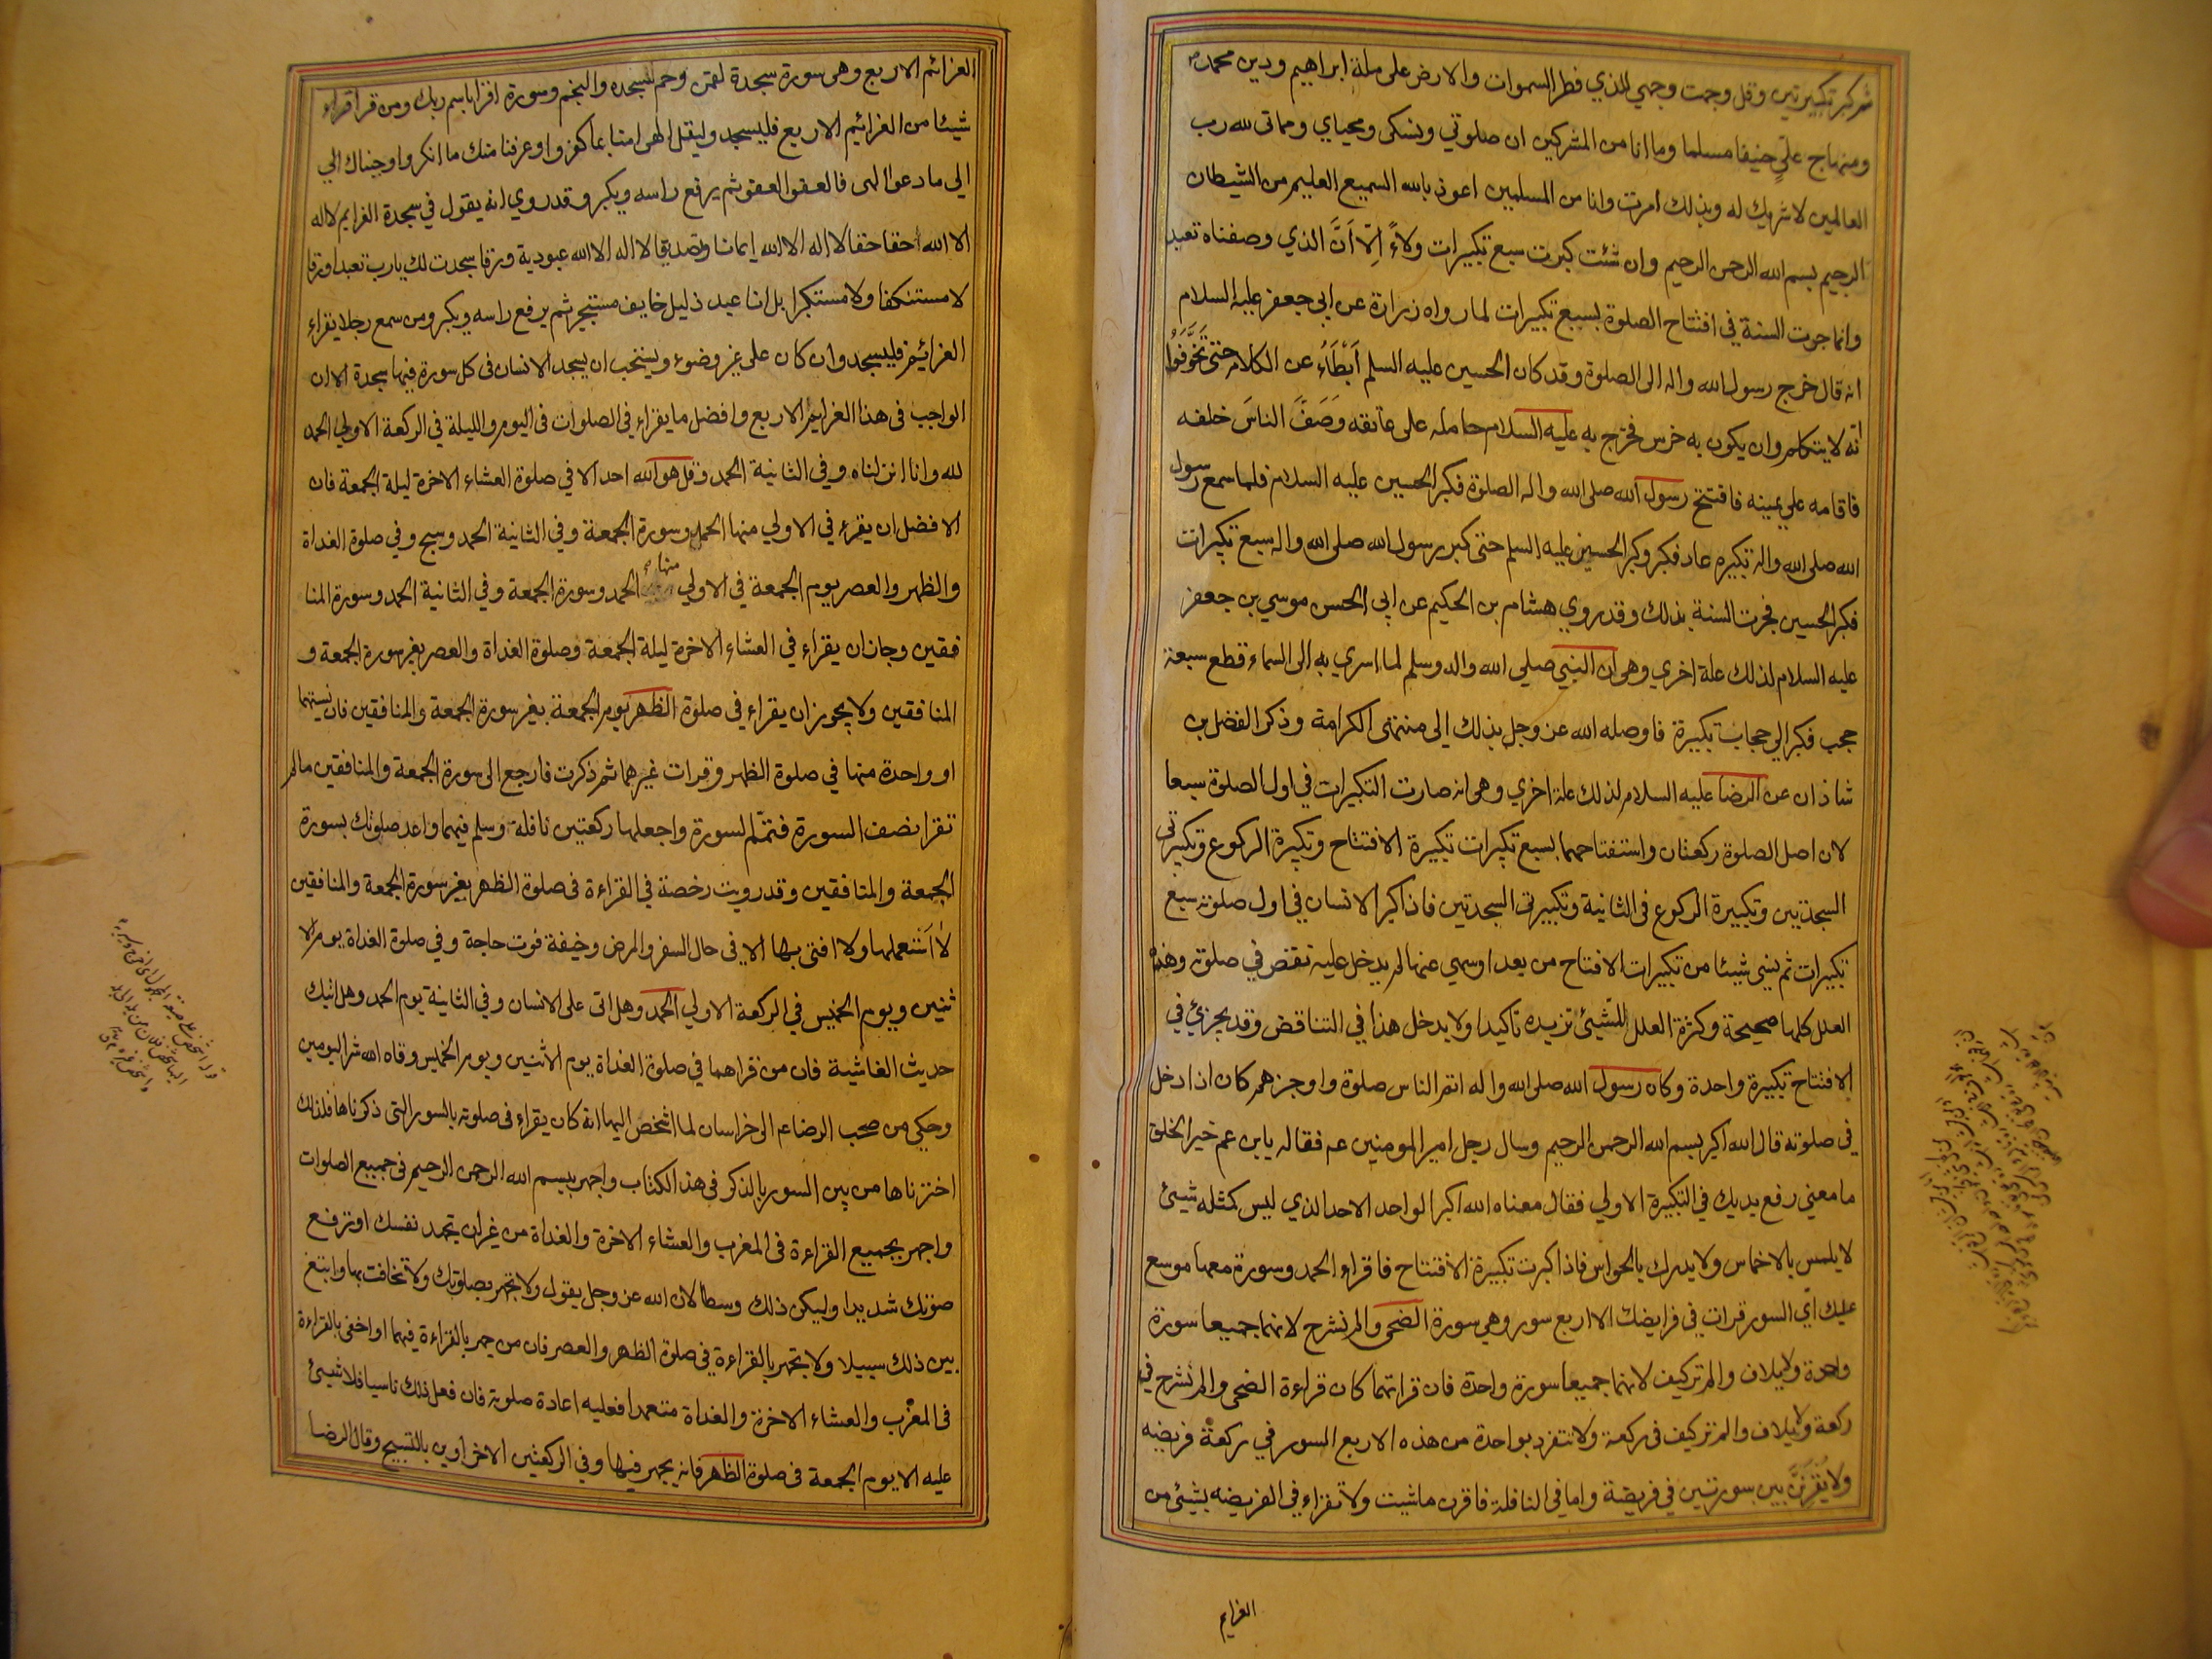 ثم كبر تكبيرتين وقل وجهت وجهي للذي فطر السموات والارض على ملة ابراهيم ودين محمد
ومنهاج علي حنيفا مسلما وما انا من المشركين ان صلوتي ونسكى ومحياي ومماتى لله رب
العالمين لا شريك له وبذلك امرت وانا من المسلمين اعوذ بالله السميع العليم من الشيطان
الرجيم بسم الله الرحمن الرحيم وان شئت كبرت سبع تكبيرات ولاءً اِلّا اَنَّ الذي وصفناه تعبد
وانما جرت السنة في افتتاح الصلوة بسبع تكبيرات لما رواه زرارة عن ابي جعفر عليه السلام
انه قال خرج رسول الله واله الى الصلوة وقد كان الحسين عليه السلم اَبْطَاَءُ عن الكلام حتى تَخَوَّفُوا
انه لا يتكلم وان يكون به خرس فخرج به عليه السلام حامله على عاتقه وَصَفَّ الناسَ خلفه
فاقامه علي يمينه فافتتح رسول الله صلى الله واله الصلوة فكبر الحسين عليه السلام فلما سمع رسول
الله صلى الله واله تكبيره عاد فكبر وكبر الحسين عليه السلم حتى كبر رسول الله صلى الله واله سبع تكبيرات
فكبر الحسين فجرت السنة بذلك وقد روي هشام بن الحكيم عن ابي الحسن موسي بن جعفر
عليه السلام لذلك علة اخري وهى ان النبي صلي الله واله وسلم لما اسري به الى السماء قطع سبعة
حجب فكبر الي حجاب تكبيرة فاوصله الله عز وجل بذلك الى منتهى الكرامة وذكر الفضل بن
شاذان عن الرضا عليه السلام لذلك علة اخري وهى انه صارت التكبيرات في اول الصلوة سبعا
لان اصل الصلوة ركعتان واستفتاحهما بسبع تكبيرات تكبيرة الافتتاح وتكبيرة الركوع وتكبيرتى
السجدتين وتكبيرة الركوع فى الثانية وتكبيرتى السجدتين فاذا كبر الانسان في اول صلوته سبع
تكبيرات ثم ينى شيئا من تكبيرات الافتتاح من بعد او سهي عنها لم يدخل عليه نقص في صلوته وهذه
العلل كلها صحيحة وكثرة العلل للشئ تزيده تاكيدا ولا يدخل هذا في التناقض وقد يجزئ في
الافتتاح تكبيرة واحدة وكان رسول الله صلى الله واله اتم الناس صلوة واوجزهم كان اذا دخل
في صلوته قال الله اكبر بسم الله الرحمن الرحيم وسال رجل امير المومنين عم فقال له يابن عم خير الخلق
ما معني رفع يديك في التكبيرة الاولي فقال معناه الله اكبر الواحد الاحد الذي ليس كمثله شيئ
لا يلمس بالاخماس ولا يدرك بالحواس فاذا كبرت تكبيرة الافتتاح فاقراء الحمد وسورة معها موسع
عليك اي السور قرات في فرايضك الا اربع سور وهي سورة الضحى والم نشرح لانهما جميعا سورة
واحدة ولايلاف والم تركيف لانهما جميعا سورة واحدة فان قراتهما كان قراءة الضحى والم نشرح في
ركعة ولايلاف والم تركيف فى ركعة ولا تنفرد بواحدة من هذه الاربع السور في ركعة فريضه
ولا يَقْرُنَنَّ بين سورتين في فريضة واما في النافلة فاقرن ما شيت ولا تقراء في الفريضه بشيئ من
العزايم
العزائم الاربع وهى سورة سجدة لقمن وحم السجده والنجم وسورة اقرا باسم ربك ومن قرا
شيئا من العزائم الاربع فليسجد وليقل الهى امنا بما كفروا وعرفنا منك ما انكروا واجبناك الي
الى ما دعوا الهى فالعفو العفو ثم يرفع راسه ويكبر وقد روي انه يقول في سجدة العزايم لا اله
الا الله حقا حقا لا اله الا الله ايمانا وتصديقا لا اله الا الله عبودية ورقا سجدت لك يا رب تعبدا ورقا
لا مستنكفا ولا مستكبرا بل انا عبد ذليل خايف مستجير ثم يرفع راسه ويكبر ومن سمع رجلا يقراء
العزايم فليسجد وان كان على غير وضوء ويستحب ان يسجد الانسان فى كل سورة فيها سجدة الا ان
الواجب فى هذا العزايم الاربع وافضل ما يقراء في الصلوات فى اليوم والليلة في الركعة الاولي الحمد
لله وانا انزلناه وفي الثانية الحمد وقل هو الله احد الا في صلوة العشاء الاخرة ليلة الجمعة فان
الافضل ان يقرء في الاولي منها الحمد وسورة الجمعة وفي الثانية الحمد وسبح وفي صلوة الغداة
والظهر والعصر يوم الجمعة في الاولي منها الحمد وسورة الجمعة وفي الثانية الحمد وسورة المنا
فقين وجاز ان يقراء في العشاء الاخرة ليلة الجمعة وصلوة الغداة والعصر بغير سورة الجمعة و
المنافقين ولا يجوز ان يقراء في صلوة الظهر يوم الجمعة بغير سورة الجمعة والمنافقين فان نسيتهما
او واحدة منها في صلوة الظهر وقرات غيرهما ثم ذكرت فارجع الى سورة الجمعة والمنافقين مالم
تقرا نصف السورة فتمّم السورة واجعلها ركعتين نافلة وسلم فيهما واعد صلوتك بسورة
الجمعة والمنافقين وقد رويت رخصة في القراءة فى صلوة الظهر بغير سورة الجمعة والمنافقين
لا استعملها ولا افتى بها الا فى حال السفر والمرض وخيفة فوت حاجة وفي صلوة الغداة يوم الا
ثنين ويوم الخميس في الركعة الاولي الحمد وهل اتى على الانسان وفي الثانية يوم الحمد وهل اتيك
حديث الغاشية فان من قراهما في صلوة الغداة يوم الاثنين ويوم الخميس وقاه الله شر اليومين
وحكي من صحب الرضا عم الى خراسان لما اشخص اليها انه كان يقراء فى صلوته بالسور التى ذكرناها فلذلك
اخترناها من بين السور بالذكر فى هذ الكتاب واجهر ببسم الله الرحمن الرحيم فى جميع الصلوات
واجهر بجميع القراءة فى المغرب والعشاء الاخرة والغداة من غير ان تجهد نفسك او ترفع
صوتك شديدا وليكن ذلك وسطا لان الله عز وجل يقول ولا تجهر بصلوتك ولا تخافت بها وابتغ
بين ذلك سبيلا ولا تجهر بالقراءة في صلوة الظهر والعصر فان من جهر بالقراءة فيهما او اخفى بالقراءة
فى المغرب والعشاء الاخرة والغداة متعمدا فعليه اعادة صلوته فان فعل ذلك ناسيا فلا شيئ
عليه الا يوم الجمعة فى صلوة الظهر فانه يجهر فيها وفي الركعتين الاخراوين بالتسبيح وقال الرضا